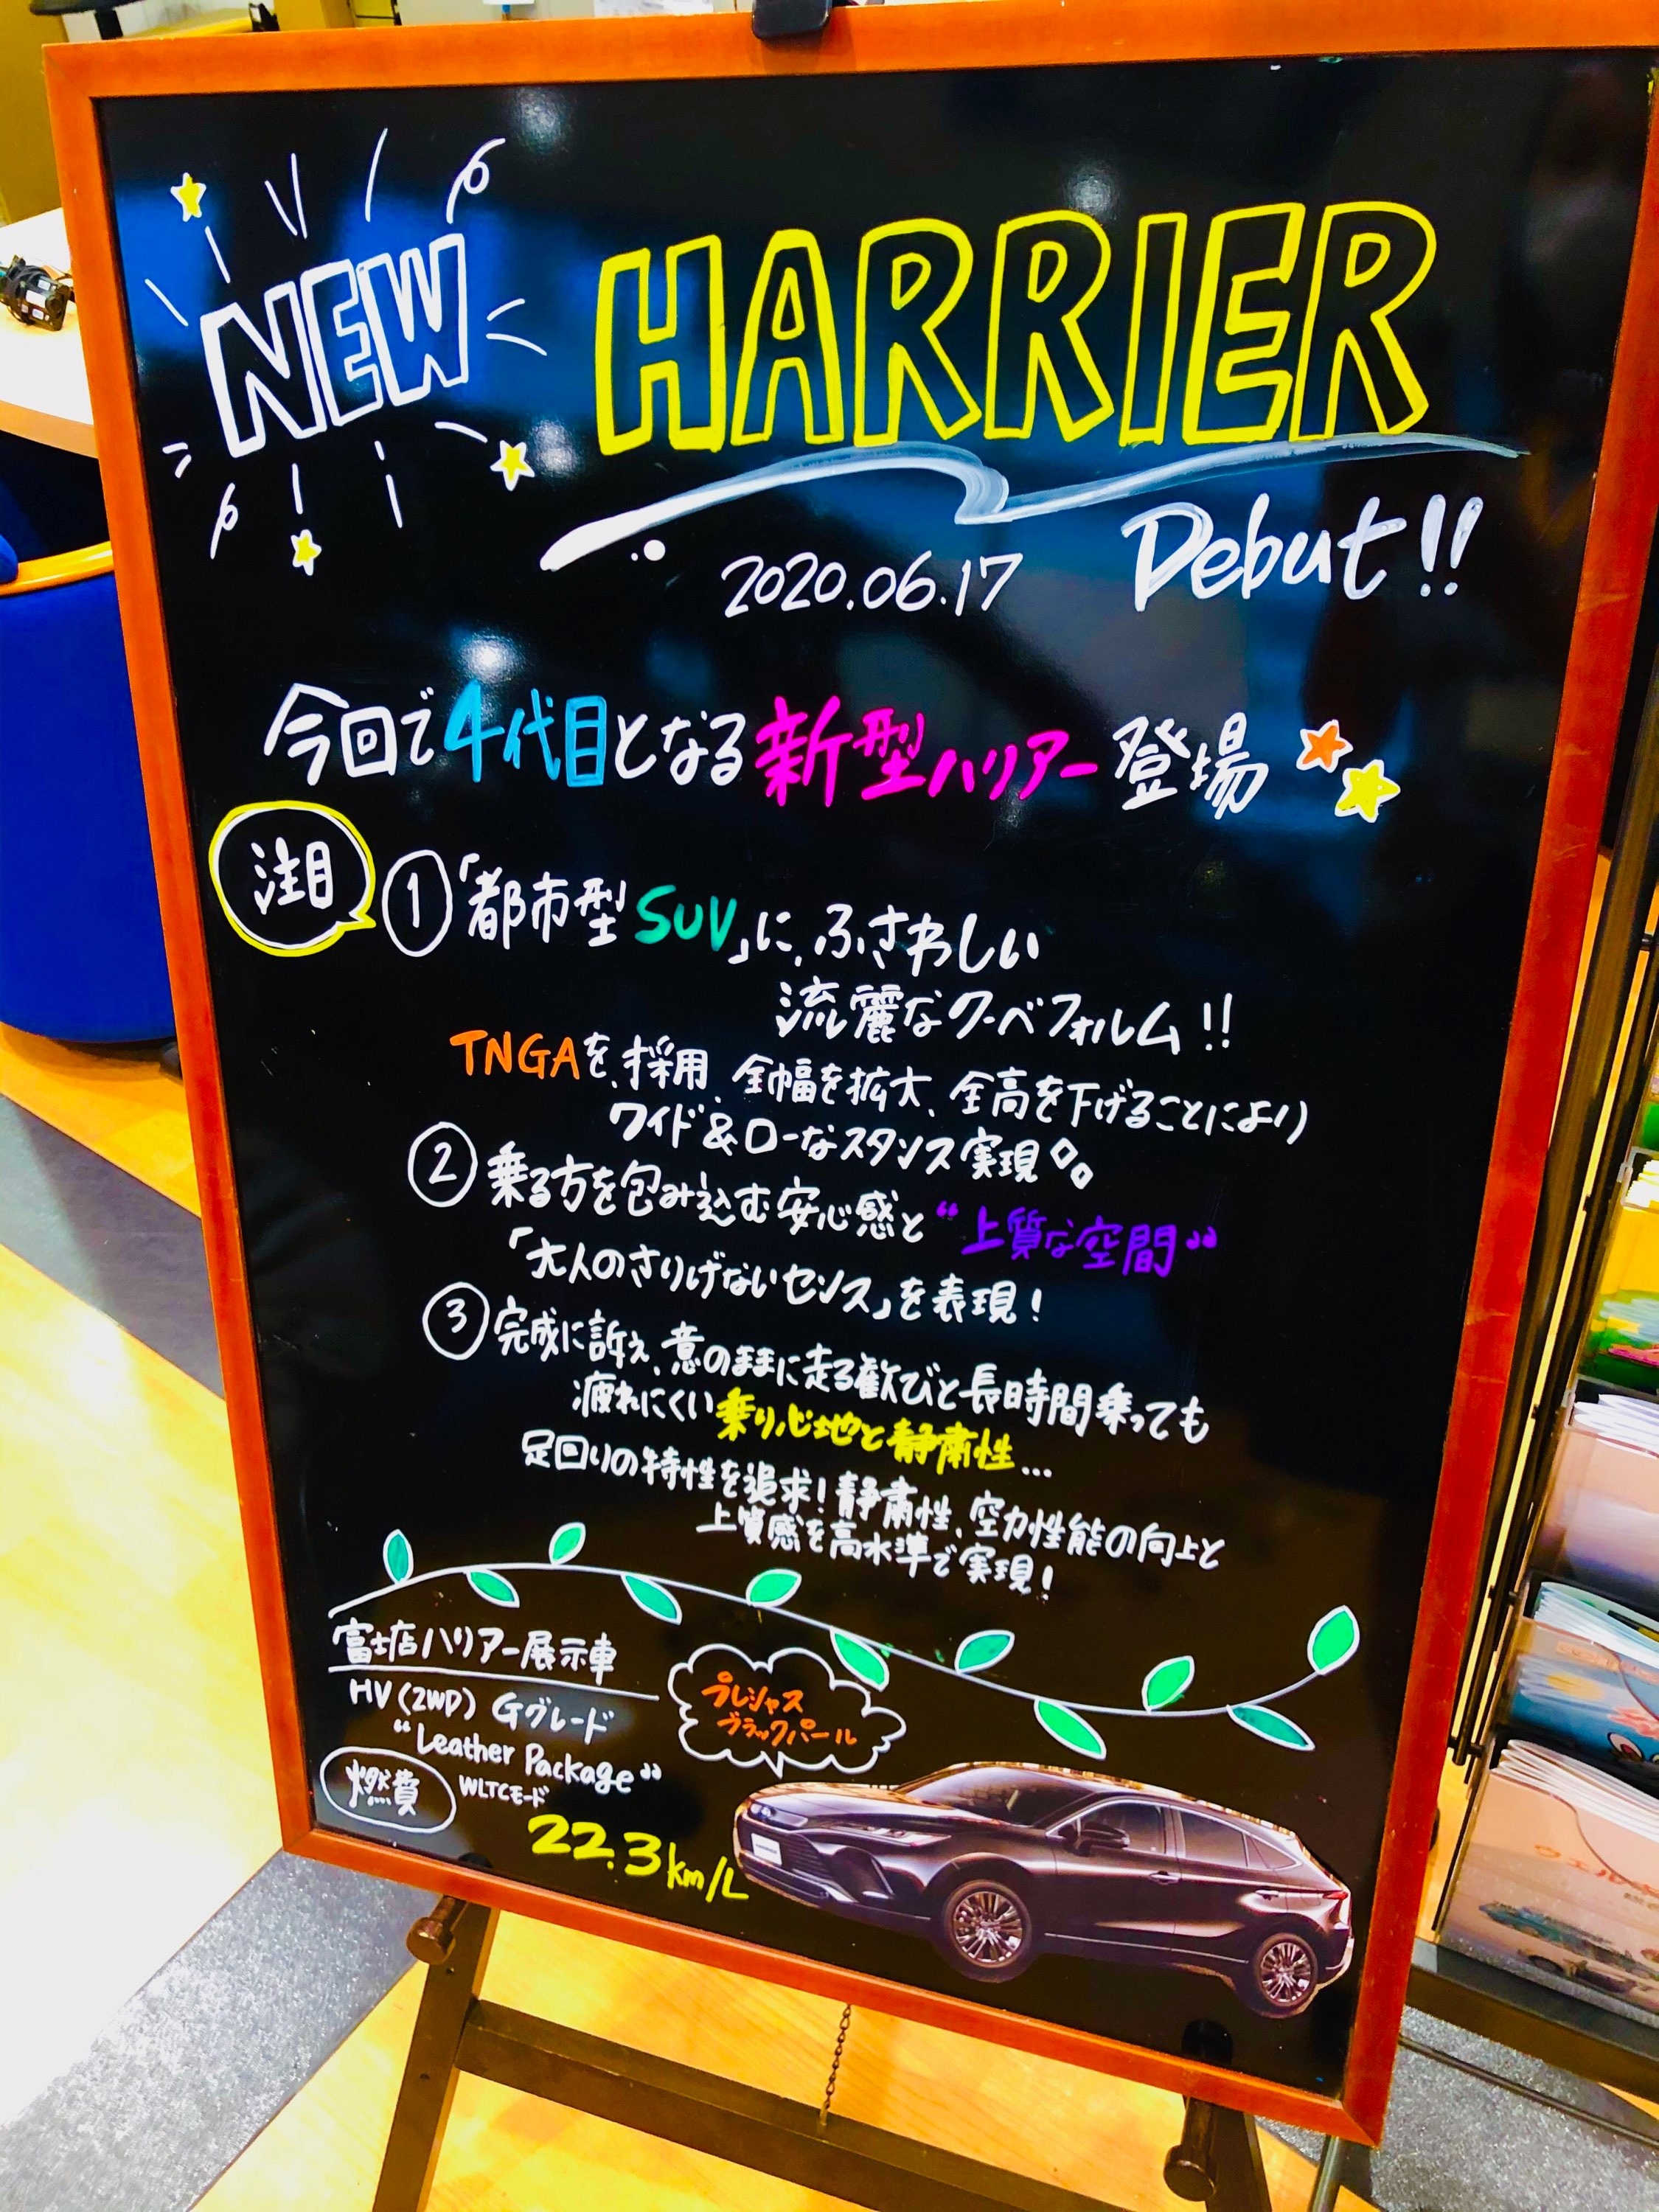 NEW HARRIER
2020.06.17 Debut!!
今回で4代目となる新型ハリアー登場
注目
①「都市型SUV」に、ふさわしい
流麗なクーペフォルム!!
TNGAを、採用、全幅を拡大、全高を下げることにより
ワイド&ローなスタンス実現。
②乗る方を包み込む安心感と“上質な空間”
「大人のさりげないセンス」を表現!
③完成に訴え、意のままに走る歓びと長時間乗っても
疲れにくい乗り心地と静粛性…
足回りの特性を追求!静粛性、空力性能の向上と
上質感を高水準で実現!
富士店ハリアー展示車
HV(2WD) Gグレード
“Leather Package”
プレシャス
ブラックパール
燃費 WLTCモード
22.3km/L